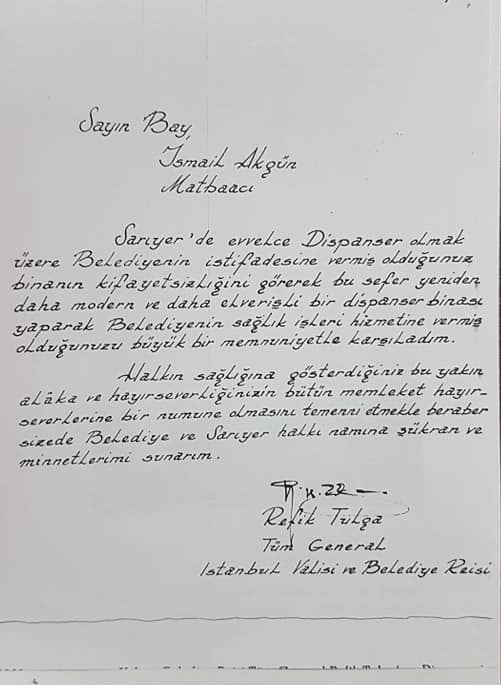 Sayın Bay,
İsmail Akgün
Matbaacı
Sarıyer'de evvelce Dispanser olmak
üzere Belediyenin istifadesine vermiş olduğunuz
binanın kifayetsizliğini görerek bu sefer yeniden
daha modern ve daha elverişli bir dispanser binası
yaparak Belediyenin sağlık işleri hizmetine vermiş
olduğunuzu büyük bir memnuniyetle karşıladım.
Halkın sağlığına gösterdiğiniz bu yakın
alâka ve hayırseverliğinizin bütün memleket hayır-
severlerine bir numune olmasını temenni etmekle beraber
sizede Belediye ve Sarıyer halkı namına şükran ve
minnetlerimi sunarım.
Refik Tulga
Tüm General
Istanbul Valisi ve Belediye Reisi